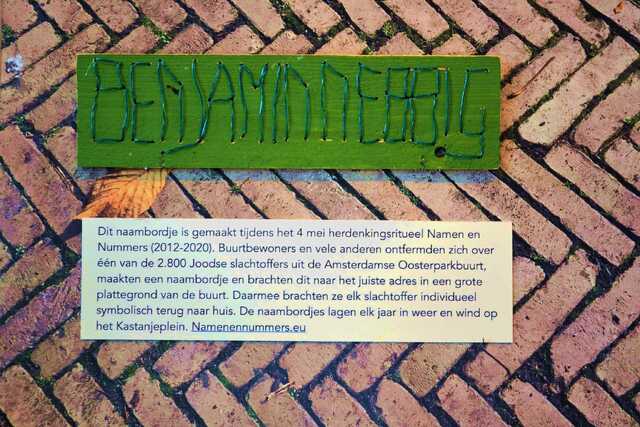 BENJAMIN NEBBIG
Dit naambordje is gemaakt tijdens het 4 mei herdenkingsritueel Namen en
Nummers (2012-2020). Buurtbewoners en vele anderen ontfermden zich over
één van de 2.800 Joodse slachtoffers uit de Amsterdamse Oosterparkbuurt,
maakten een naambordje en brachten dit naar het juiste adres in een grote
plattegrond van de buurt. Daarmee brachten ze elk slachtoffer individueel
symbolisch terug naar huis. De naambordjes lagen elk jaar in weer en wind op
het Kastanjeplein. Namenennummers.eu